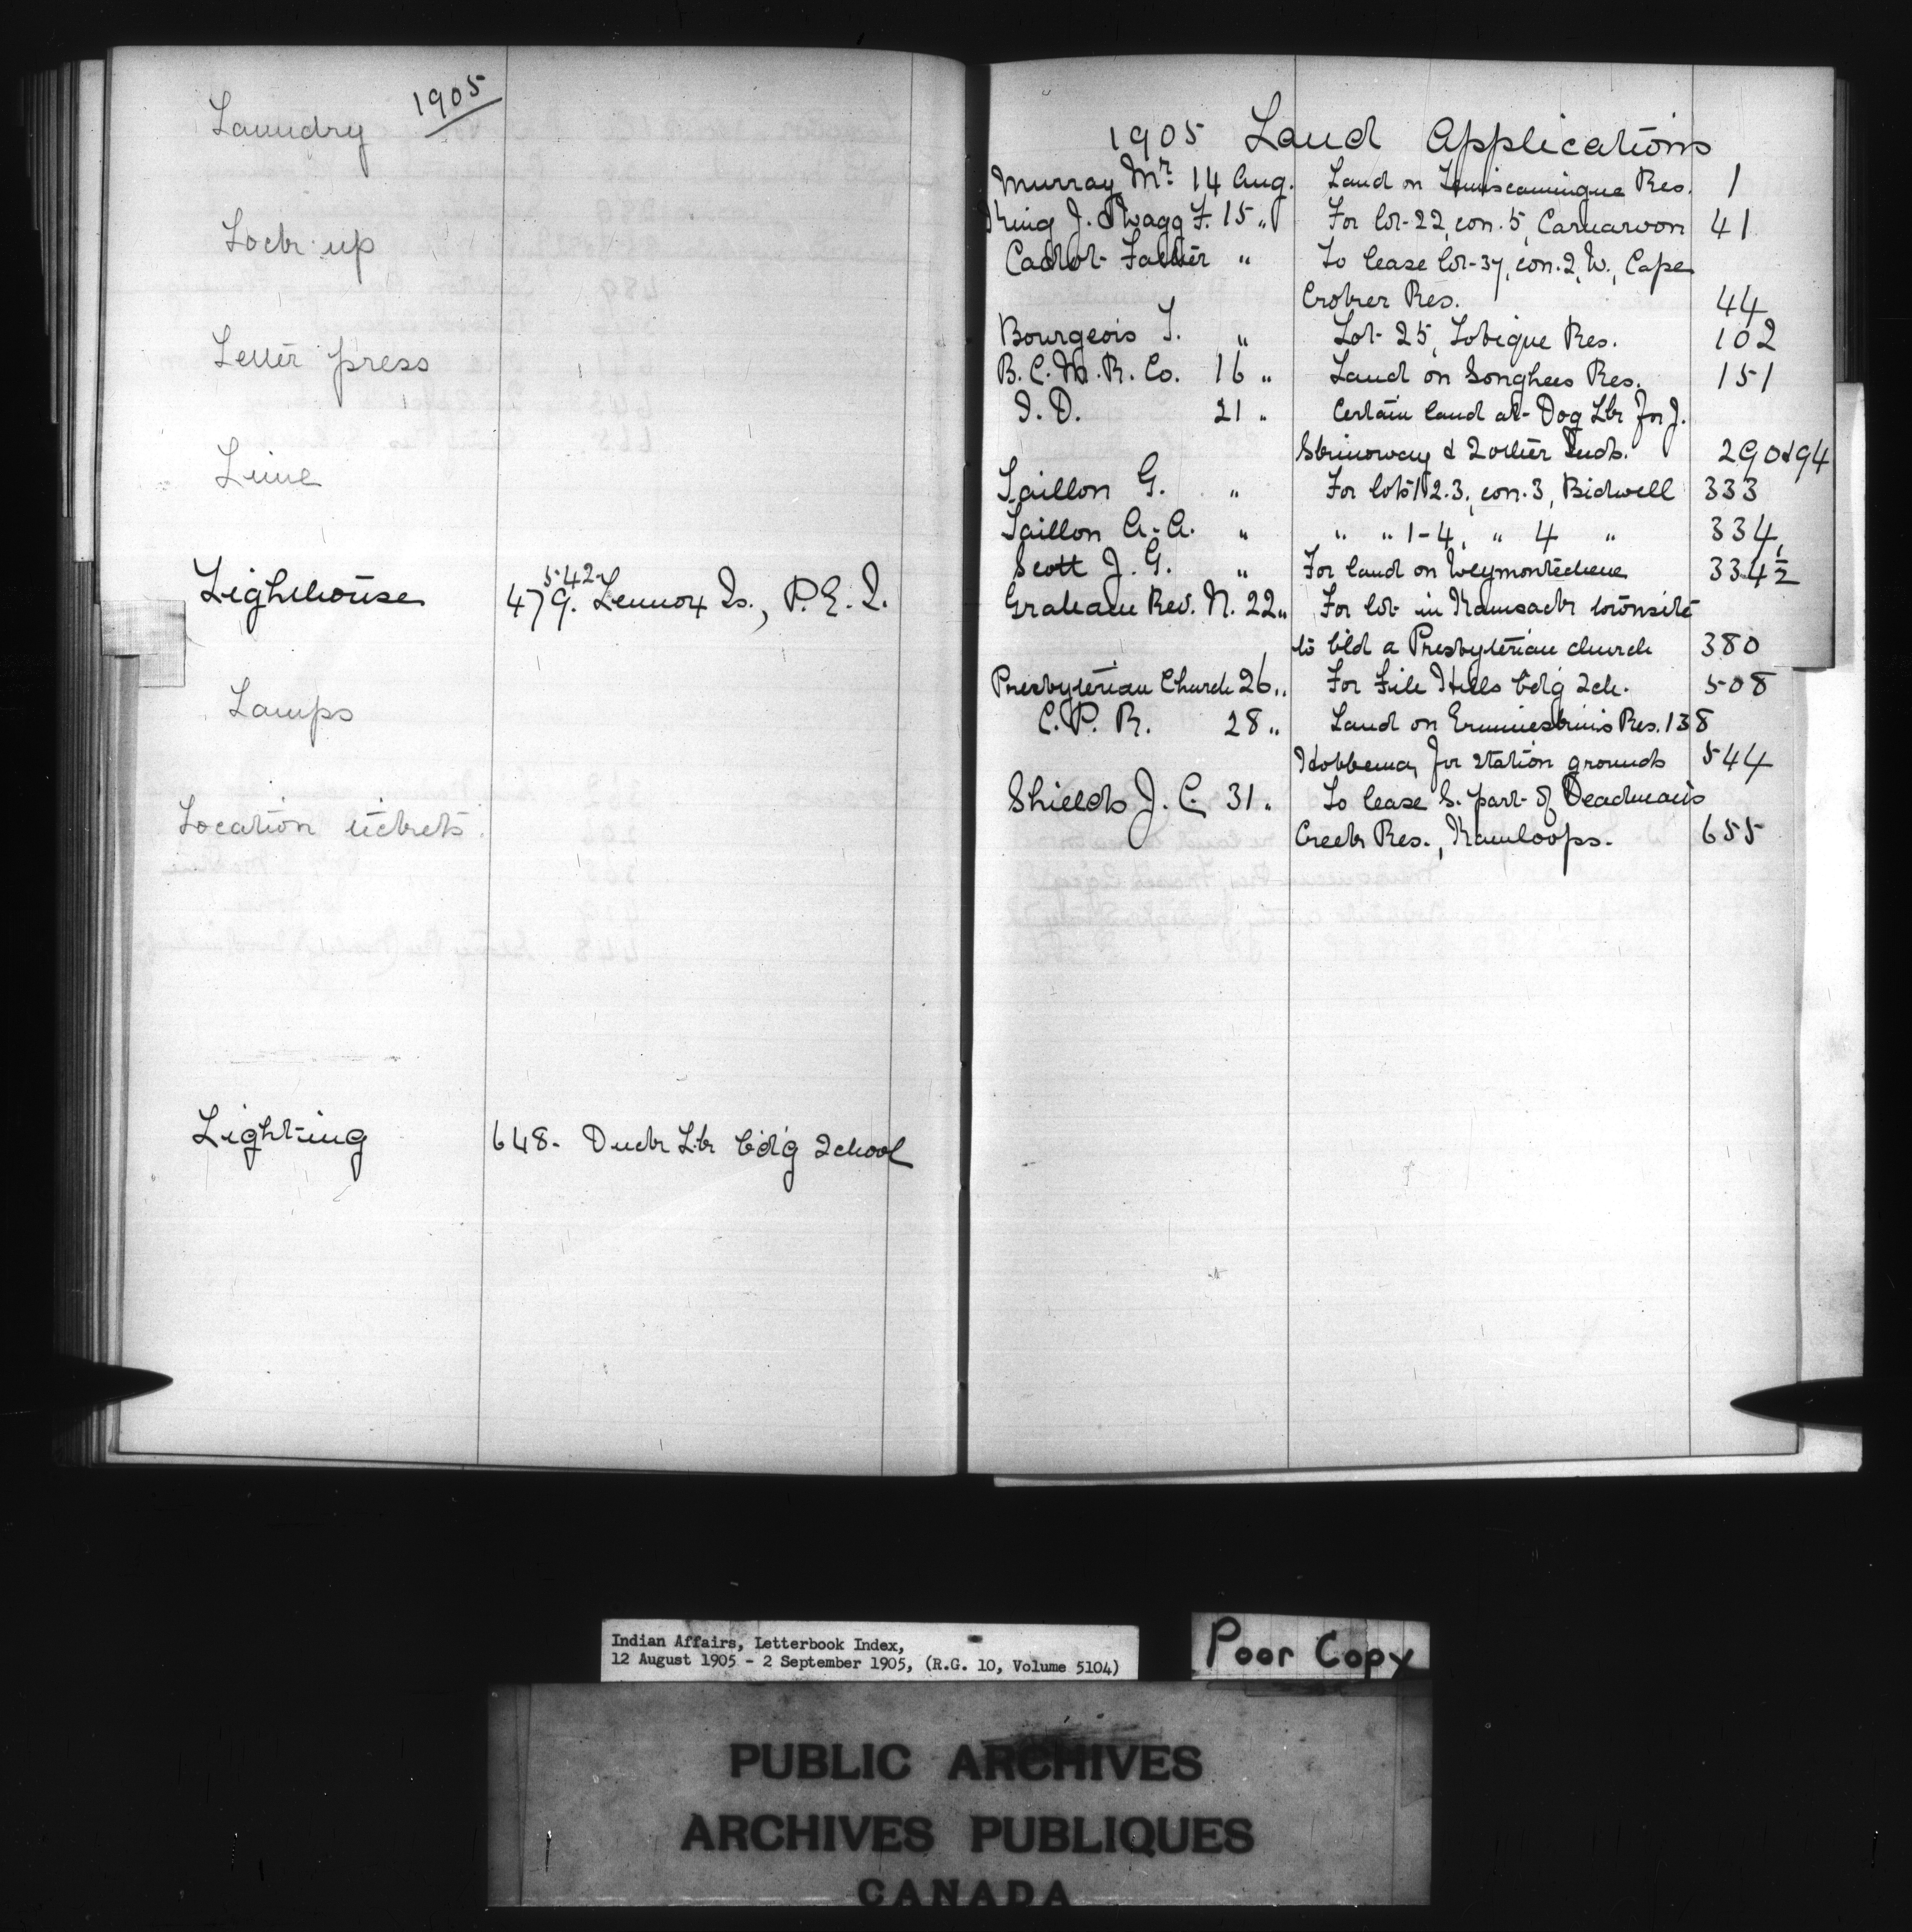 1905
Laundry
Lock up
Letter press
Lime
Lighthouse 479. 542 Lennox Is., P.E.I.
Lamps
Location tickets.
Lighting 648. Duck Lk bd'g School
1905 Land Applications
Murray Mr. 14 Aug. Land on Temiscamingue Res. 1
King J. & Wagg F. 15 " For lot 22, con. 5, Carnarvon 41
Cadot Father " To lease lot 37, con. 2, W., Cape
Croker Res. 44
Bourgeois T. " Lot 25, Tobique Res. 102
B.C.M.R. Co. 16 " Land on Songhees Res. 151
I. D. 21 " Certain land at Dog Lk for J.
& 2 other Inds. 290 & 94
Taillon G. " For lots 1 2. 3, con. 3, Bidwell 333
Taillon A. A. " " " 1-4, " 4 " 334
Scott J. G. " For land on Weymontachene 334½
Graham Rev. N. 22 " For lot in Kamsack townsite
to bld a Presbyterian church 380
Presbyterian Church 26 " For File Hills bd'g sch. 508
C. P. R. 28 " Land on Ermineskin's Res. 138
Hobbema, for station grounds 544
Shields J. C. 31 " To lease S. part of Deadman's
Creek Res., Kamloops. 655
Indian Affairs, Letterbook Index,
12 August 1905 - 2 September 1905, (R.G. 10, Volume 5104)
Poor Copy
PUBLIC ARCHIVES
ARCHIVES PUBLIQUES
CANADA